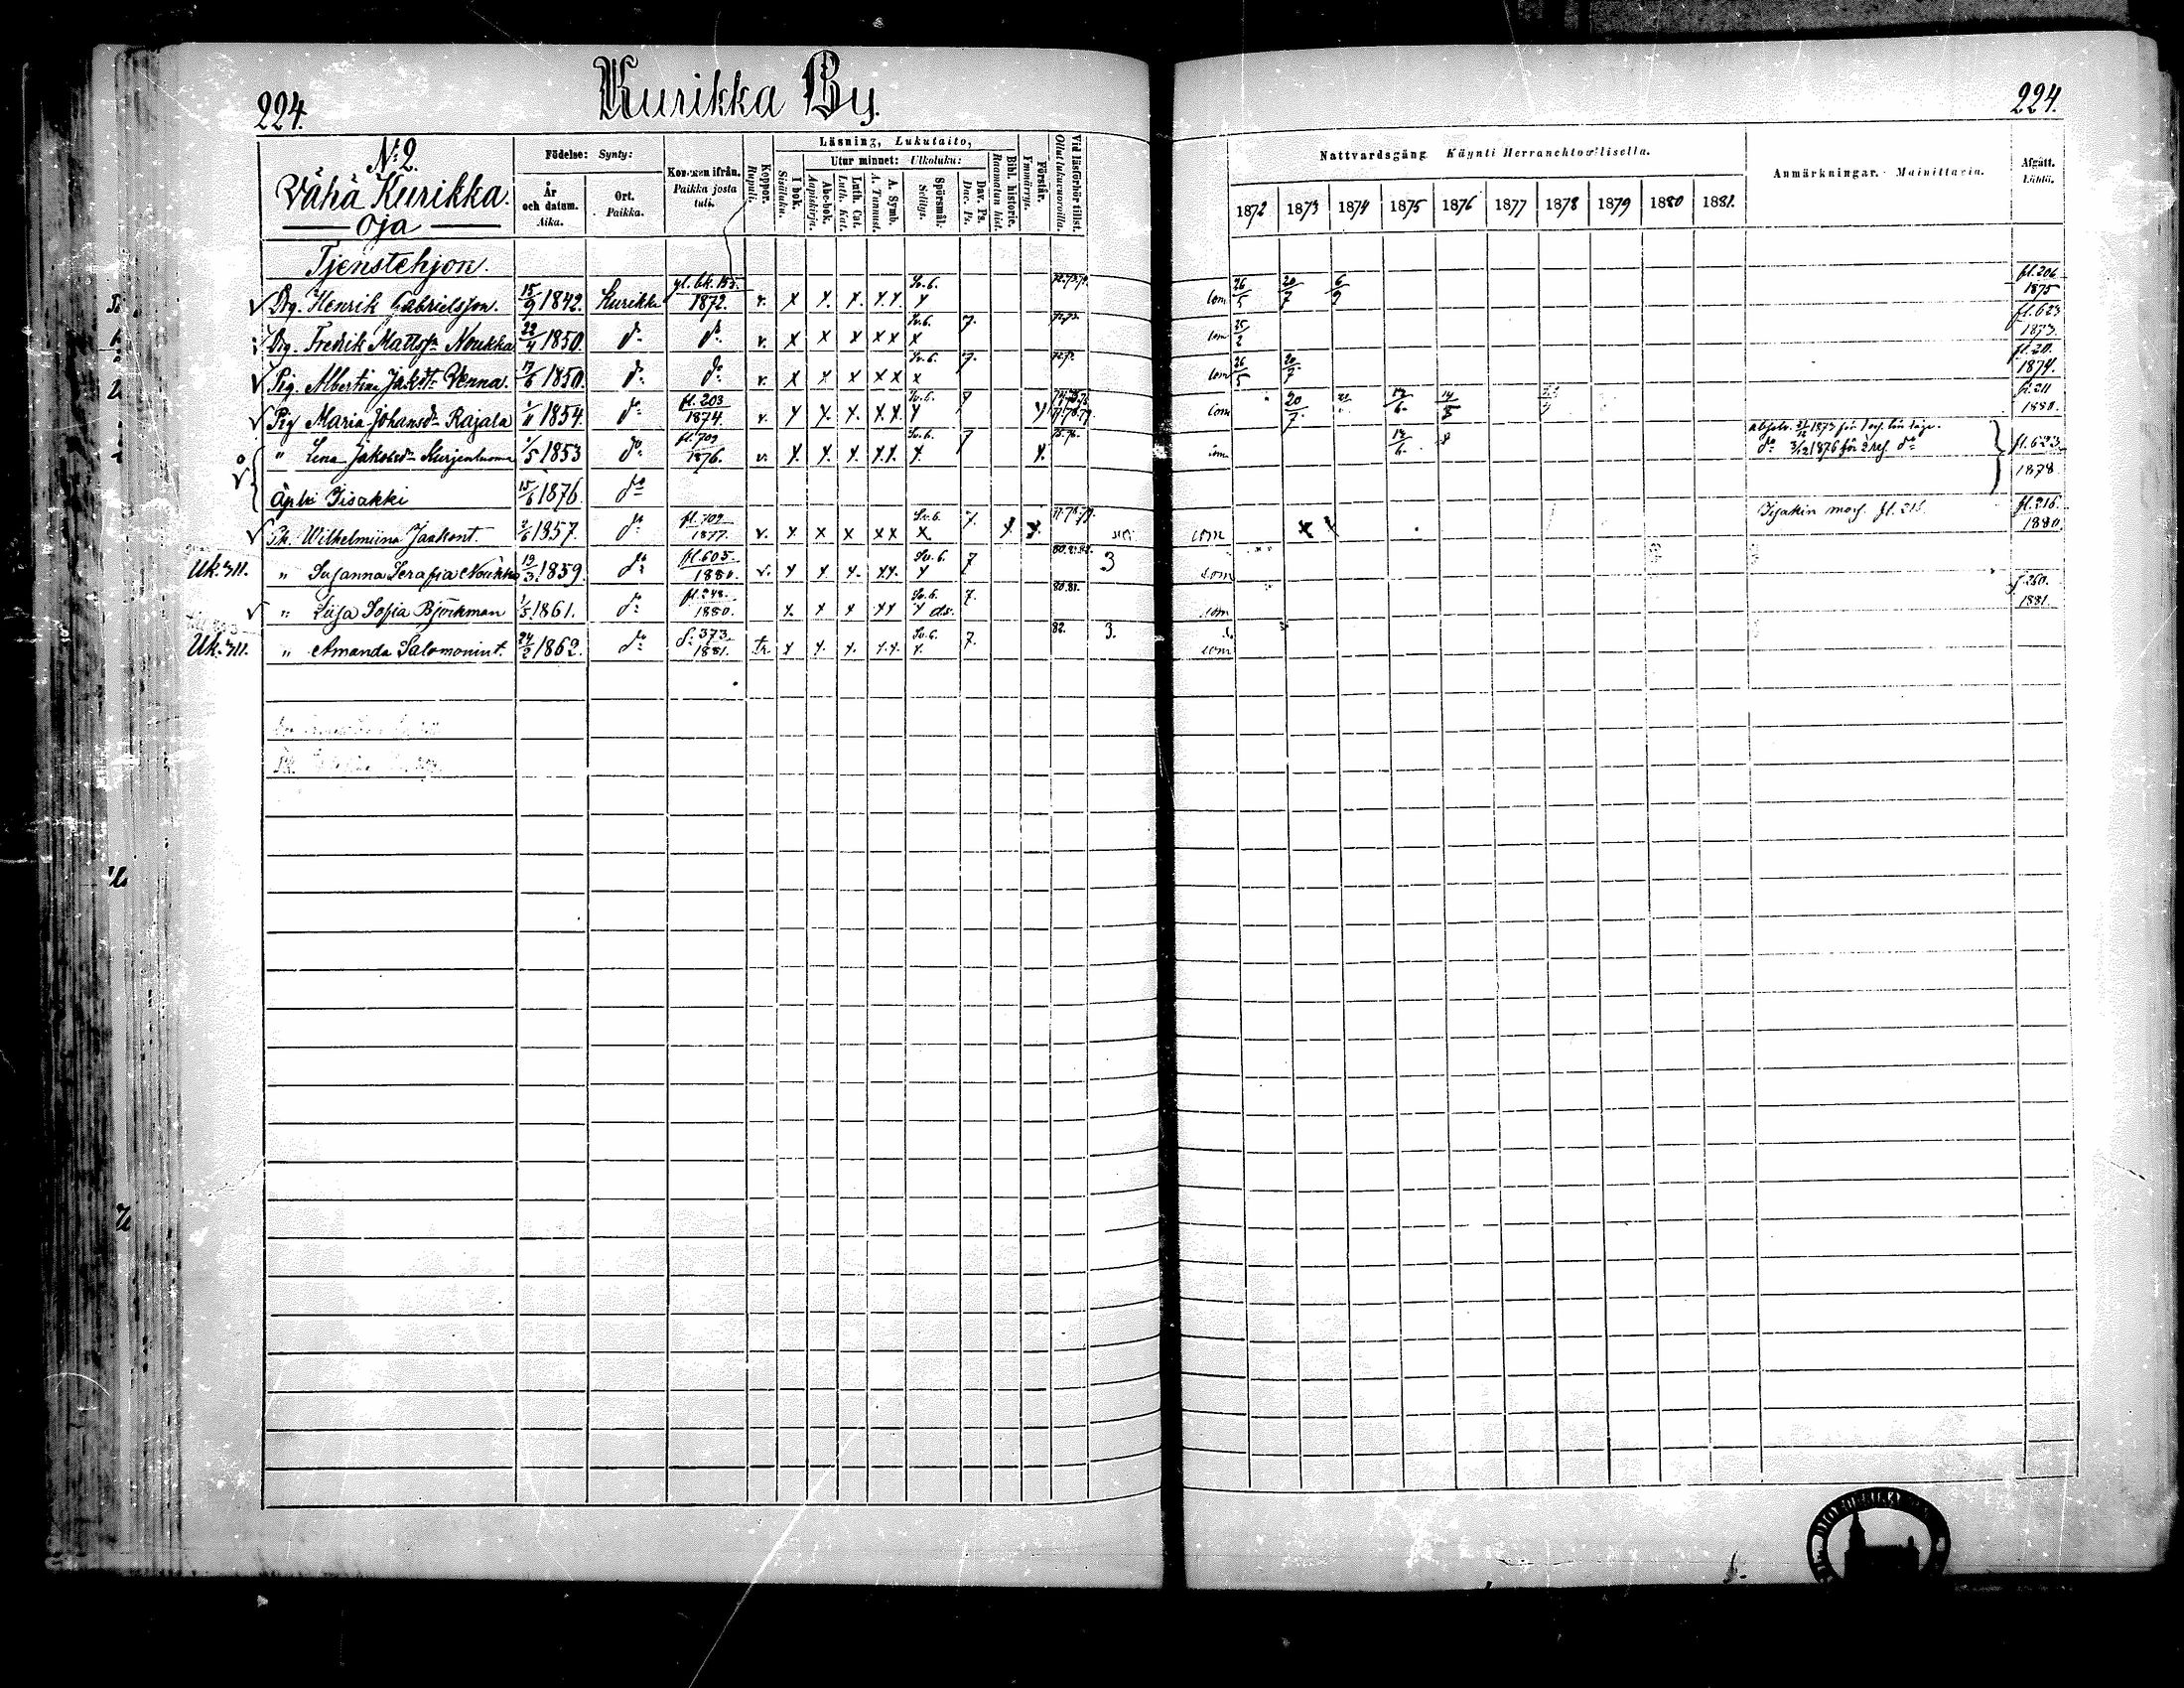 224.
Kurikka By.
224.
No 2
Vähä Kurikka.
oja
Födelse: Synty:
År och datum. Aika.
Ort. Paikka.
Kommen ifrån. Paikka josta tuli.
Koppor. Rupuli.
Läsning, Lukutaito,
I bok. Sisäluku.
Utur minnet: Ulkoluku:
Abc-bok. Aapiskirja.
Luth. Cat. Luth. Kat.
A. Symb. A. Tunnust.
Spörsmål. Selitys.
Dav. Ps. Dav. Ps.
Bibl. historie. Raamatun hist.
Förstår. Ymmärrys.
Vid läsförhör tillst. Ollut lukuvuoroilla.
Nattvardsgång Käynti Herranehtoollisella.
1872 1873 1874 1875 1876 1877 1878 1879 1880 1881.
Anmärkningar. Mainittavia.
Afgått. Lähtö.
Tjenstehjon.
Drg. Henrik Gabrielsson. 15/9 1842. Kurikka gl. bk. 155. 1872. v. x x. x. x.x. Sv.b. x com 26/5 20/7 6/9 fl. 206 1875
Drg. Fredrik Mattss. Noukka 22/4 1850. do do v. x x x x x Sv.b. x 7. com 25/2 fl. 623 1873.
Pig. Albertina Jakobsdr Venna. 17/6 1850. do do v. x x x x x Sv.b. x 7. com 26/5 20/7 fl. 20. 1874.
Pig Maria Johansdr Rajala 1/11 1854. do fl. 203 1874. v. x x. x. x.x. Sv.b. x 7 com 20/7. fl. 211 1880.
" Lena Jakobsdr 1/5 1853 do fl. 709 1876. v. x. x. x. x.x. Sv.b. x. 7 x. 75.76. 13/6. fl. 623 1878
do 3/12 1876 för 2 do
Äpl: Iisakki 15/6 1876. do
Pk. Wilhelmiina Jaakont. 2/6 1857. do fl. 709 1877. v. x x x x x Sv.b. x 7. x x. 77.78.79. com x x Isakin fl. 215. fl. 216. 1880.
Uk. 311. " Susanna Serafia Noukka 19/3 1859. do fl. 605. 1880. v. x x. x. x.x. Sv.b. x 7 3 com
" Liisa Sofia Björkman 1/5 1861. do fl. 248. 1880. x. x x x x Sv.b. x 7. 80.81. com f. 260. 1881.
Uk. 311. " Amanda Salomonint. 24/2 1862. do f. 373 1881. tr. x x. x. x.x. Sv.b. x. 7. 82. 3. com